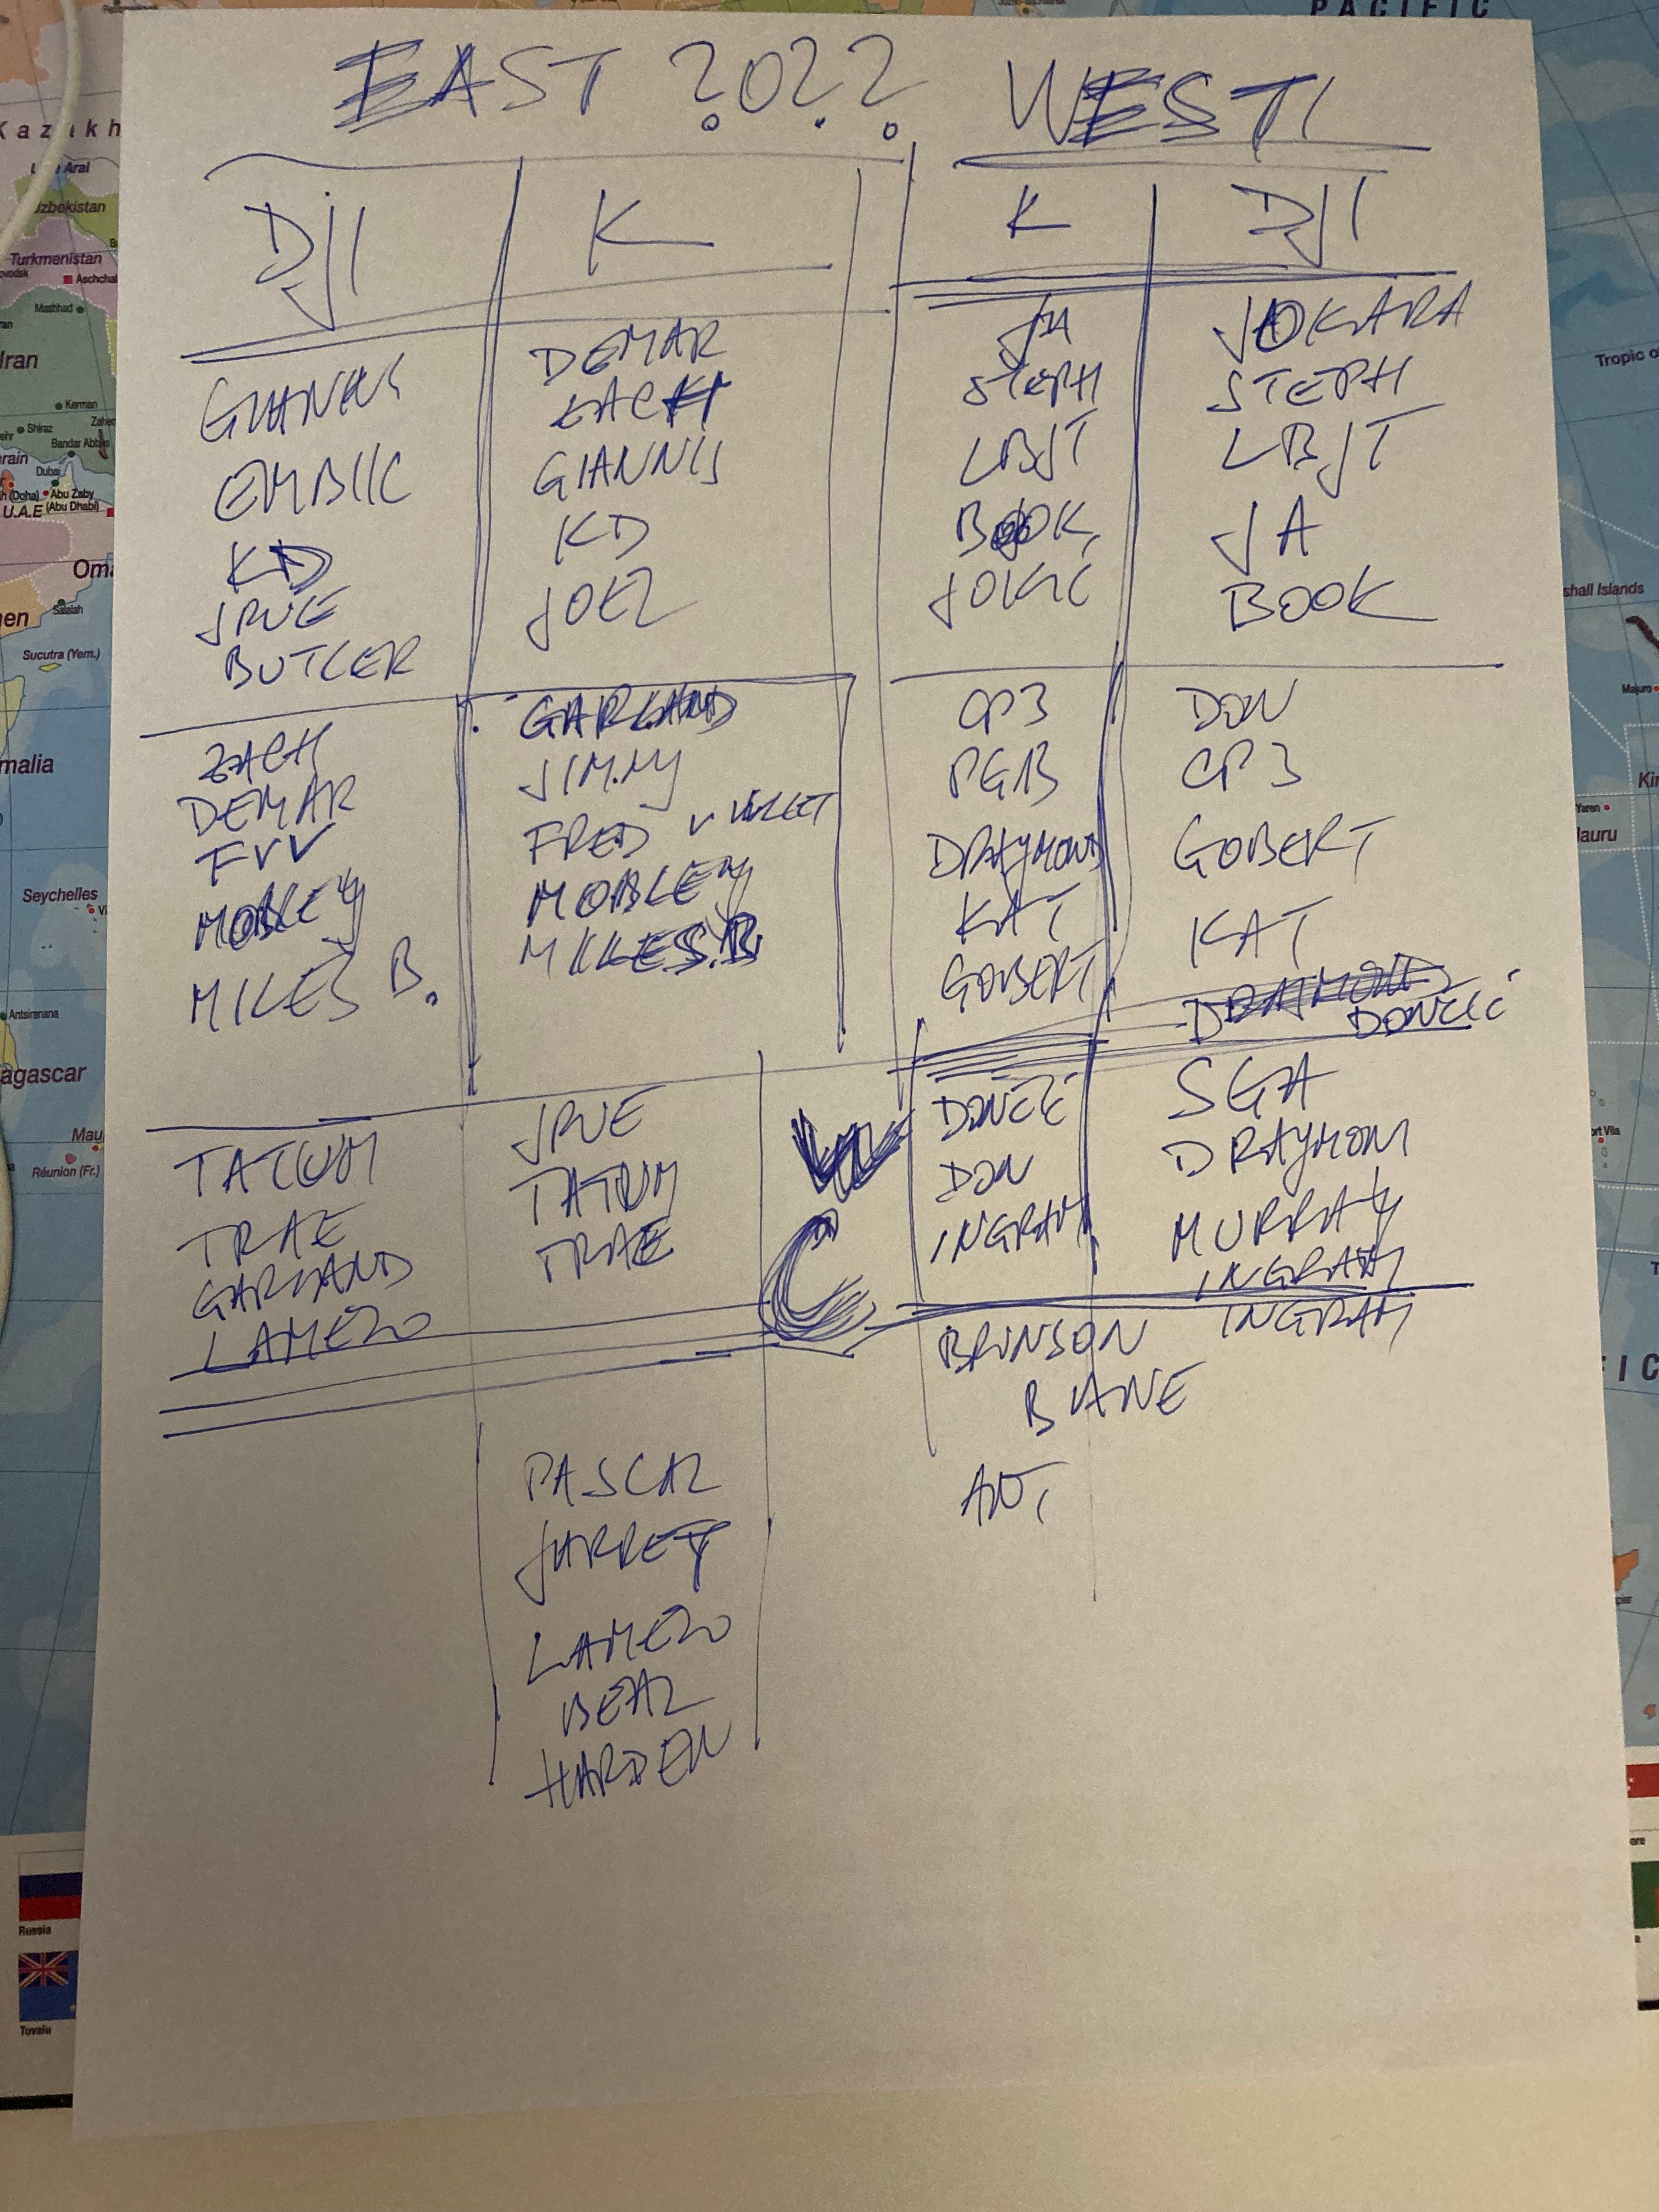 EAST 2022 WEST
DJI K K DJI
GIANNIS
EMBIIC
KD
JRUE
BUTLER
ZACH
DEMAR
FVV
MOBLEY
MILES B.
TATUM
TRAE
GARLAND
LAMELO
DEMAR
ZACH
GIANNIS
KD
JOEL
GARLAND
JIMMY
FRED V VLEET
MOBLEY
MILES B.
JRUE
TATUM
TRAE
PASCAL
JARRET
LAMELO
BEAL
HARDEN
JA
STEPH
LBJT
BOOK,
JOKIC
CP3
PG13
DRAYMOND
KAT
GOBERT
DON
INGRAM
BRUNSON
BANE
JOKARA
STEPH
LBJT
JA
BOOK
DON
CP3
GOBERT
KAT
DRAYMOND
DONCIC
SGA
DRAYMON
MURRAY
INGRAM
INGRAM
PACIFIC
Kazakh
Uzbekistan
Turkmenistan
Aschchab
Mashhad
Iran
Kerman
Shiraz
Bandar Abbas
Dubai
(Doha) Abu Zaby
U.A.E (Abu Dhabi)
Salalah
Sucutra (Yem.)
Seychelles
Antsiranana
agascar
Réunion (Fr.)
Russia
Tuvalu
Tropic o
shall Islands
Majuro
Yaren
Nauru
Port Vila